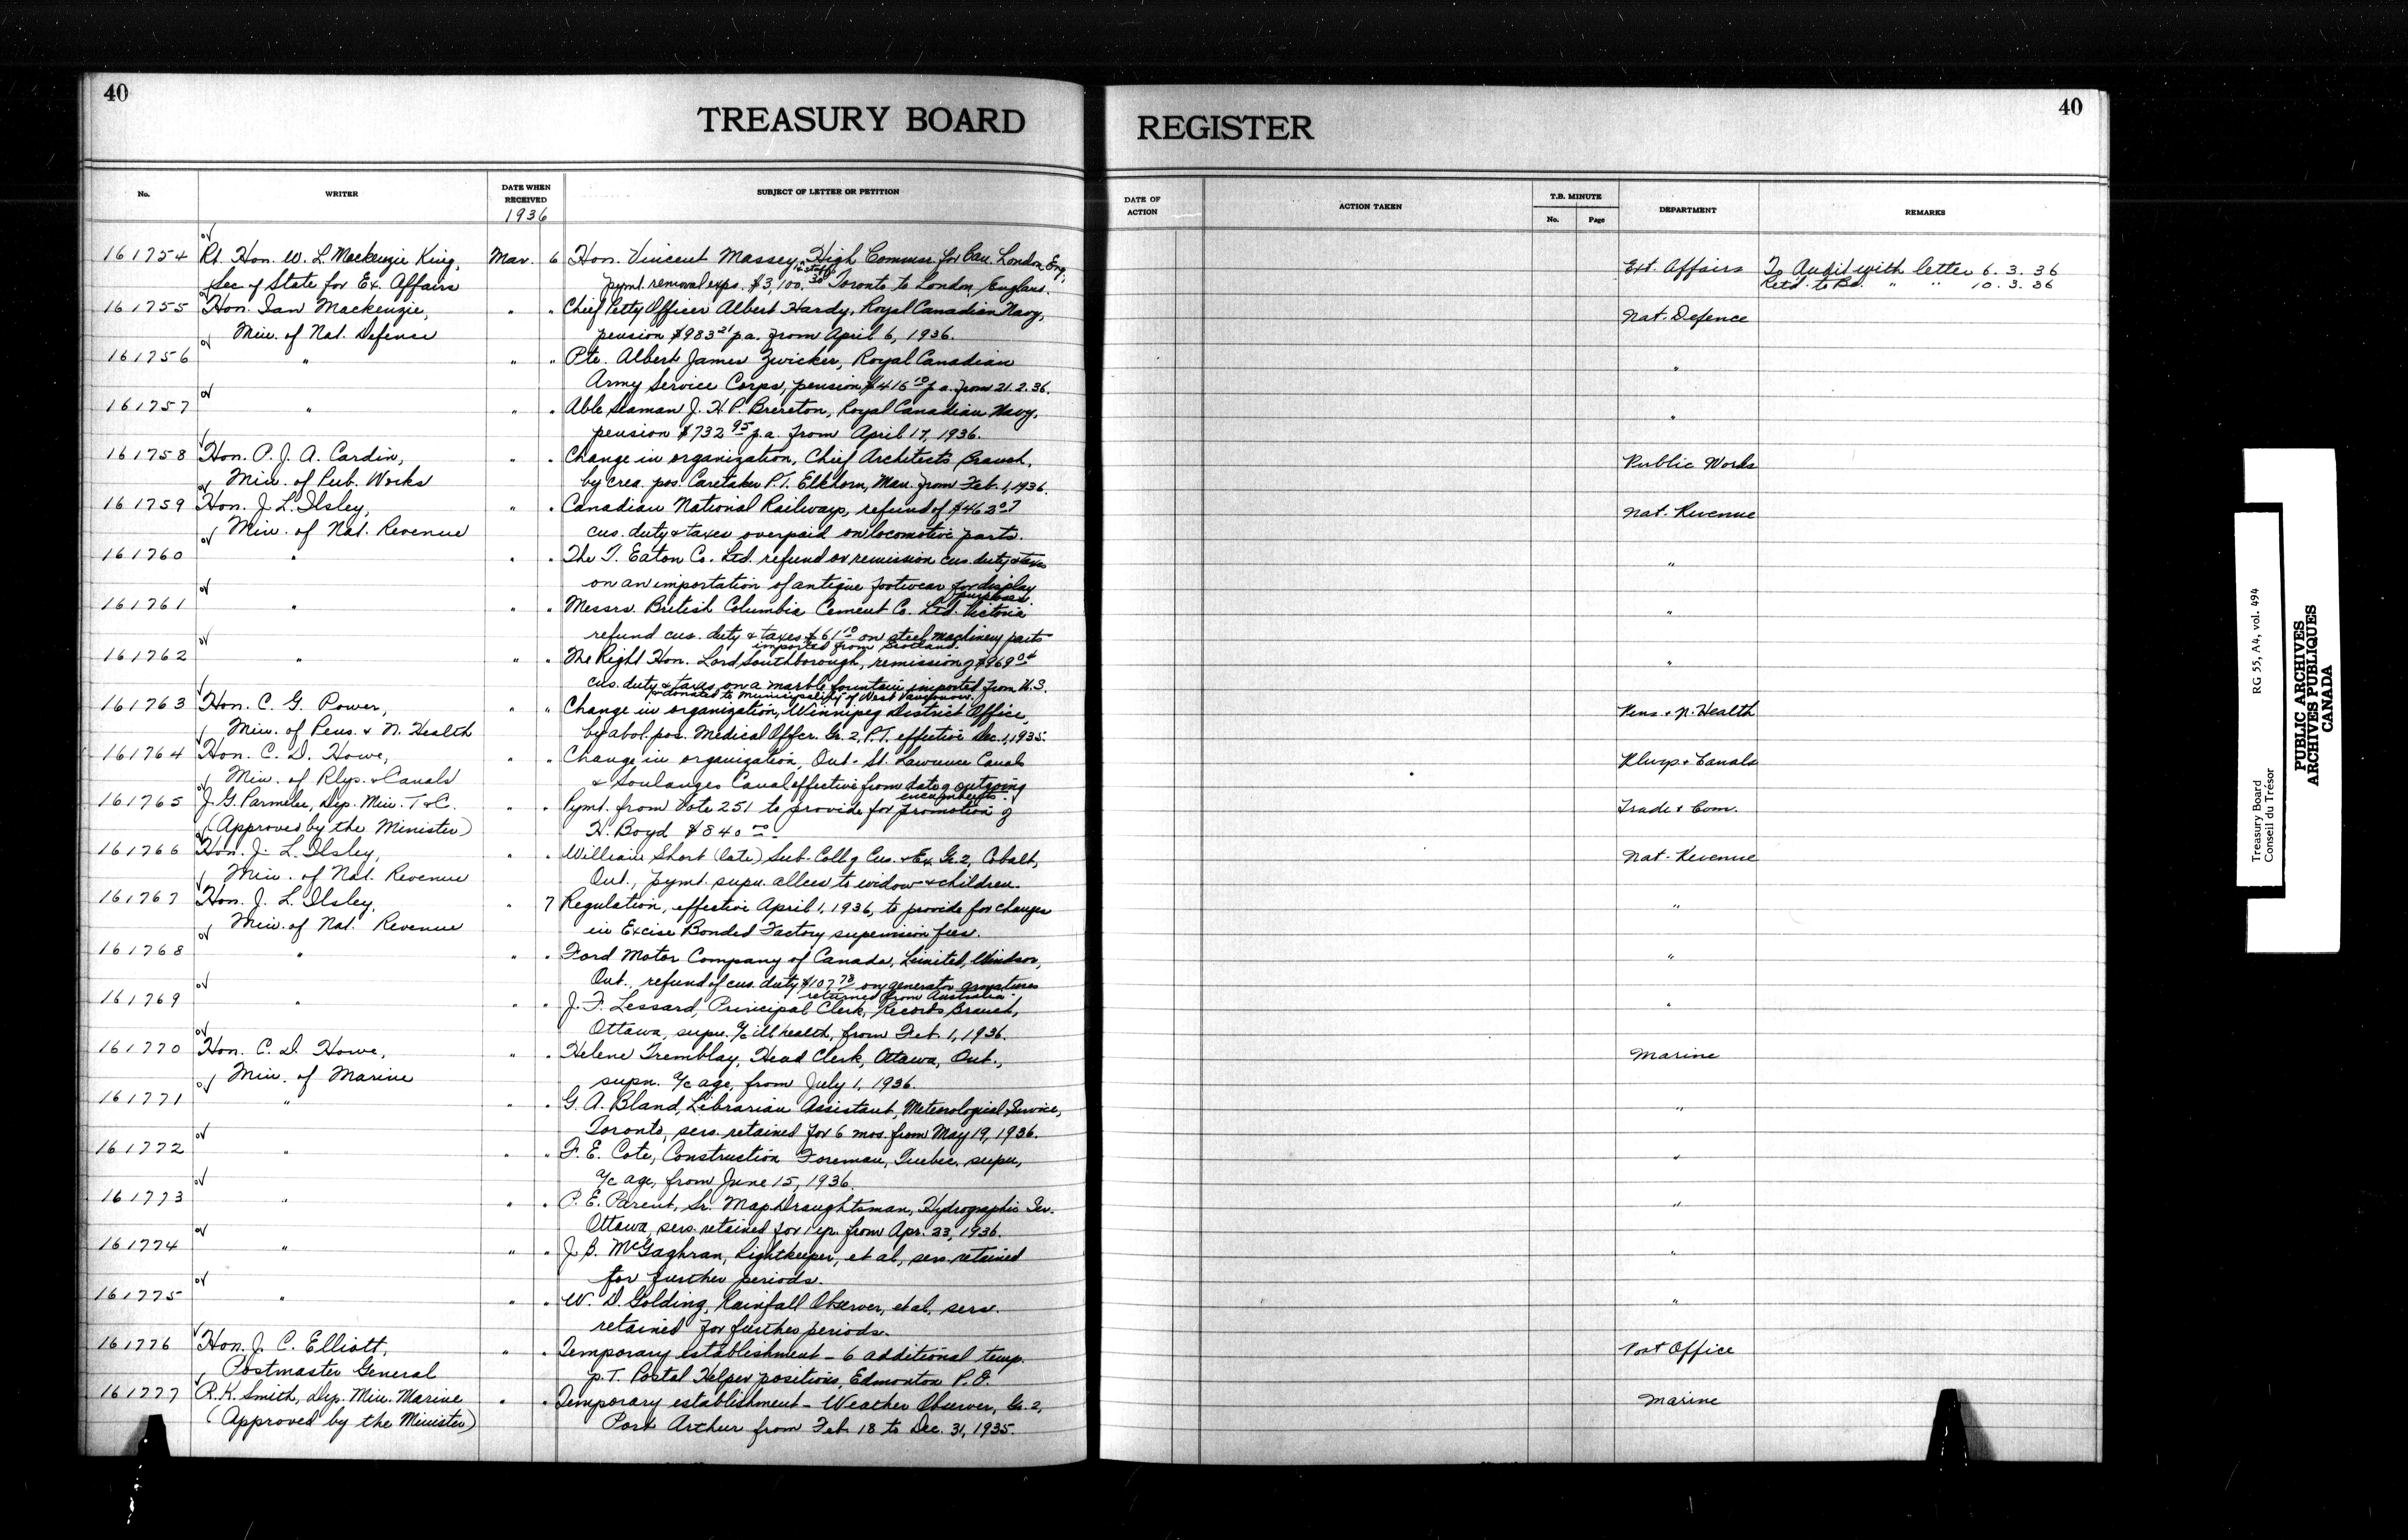 40
TREASURY BOARD
REGISTER
40
No.
WRITER
DATE WHEN RECEIVED
1936
SUBJECT OF LETTER OR PETITION
DATE OF ACTION
ACTION TAKEN
T.B. MINUTE
No.
Page
DEPARTMENT
REMARKS
161754 Rt. Hon. W. L. Mackenzie King, Mar. 6 Hon. Vincent Massey, High Commr. for Can. London Eng, Ext. Affairs To Audit with letter 6. 3. 36
Sec of State for Ex. Affairs & staff pymt. removal exps. $3,100.30 Toronto to London, England. Retd. to Bd. " " 10. 3. 36
161755 Hon. Ian Mackenzie, " " Chief Petty Officer Albert Hardy, Royal Canadian Navy, Nat. Defence
Min. of Nat. Defense pension $983 21 p.a. from April 6, 1936.
161756 " " " Pte. Albert James Zwicker, Royal Canadian "
Army Service Corps, pension $416 10 p.a. from 21.2.36.
161757 " " " Able Seaman J. H. P. Brereton, Royal Canadian Navy, "
pension $732 95 p.a. from April 17, 1936.
161758 Hon. P. J. A. Cardin, " " Change in organization, Chief Architects Branch, Public Works
Min. of Pub. Works by crea. pos. Caretaker P.T. Elkhorn, Man. from Feb. 1, 1936.
161759 Hon. J. L. Ilsley, " " Canadian National Railways, refund of $463 07 Nat. Revenue
Min. of Nat. Revenue cus. duty & taxes overpaid on locomotive parts.
161760 " " " The T. Eaton Co. Ltd. refund or remission cus. duty & taxes "
on an importation of antique footwear for display purposes.
161761 " " " Messrs. British Columbia Cement Co. Ltd. Victoria "
refund cus. duty & taxes $61 10 on steel machinery parts
imported from Scotland.
161762 " " " The Right Hon. Lord Southborough, remission of $969 04 "
cus. duty & taxes on a marble fountain imported from U.S.
donated to Municipality of West Vancouver.
161763 Hon. C. G. Power, " " Change in organization, Winnipeg District Office, Pens. & N. Health
Min. of Pens. & N. Health by abol. pos. Medical Offcr. Gr. 2, P.T. effective Dec. 1, 1935.
161764 Hon. C. D. Howe, " " Change in organization, Ont.-St. Lawrence Canals Rlwys. & Canals
Min. of Rlys. & Canals & Soulanges Canal effective from date of outgoing
encumbents.
161765 J. G. Parmelee, Dep. Min. T. & C. " " Pymt. from Vote 251 to provide for promotion of Trade & Com.
(Approved by the Minister) H. Boyd $840 00.
161766 Hon. J. L. Ilsley, " " William Short (late) Sub-Coll of Cus. & Ex. Gr. 2, Cobalt, Nat. Revenue
Min. of Nat. Revenue Ont., pymt. supn. allces to widow & children.
161767 Hon. J. L. Ilsley, " 7 Regulation, effective April 1, 1936, to provide for changes "
Min. of Nat. Revenue in Excise Bonded Factory supervision fees.
161768 " " " Ford Motor Company of Canada, Limited, Windsor, "
Ont., refund of cus. duty $107 78 on generator armatures
returned from Australia.
161769 " " " J. F. Lessard, Principal Clerk, Records Branch, "
Ottawa, supn. a/c ill health, from Feb 1, 1936.
161770 Hon. C. D. Howe, " " Helene Tremblay, Head Clerk, Ottawa, Ont., Marine
Min. of Marine supn. a/c age, from July 1, 1936.
161771 " " " G. A. Bland, Librarian Assistant, Meteorological Service, "
Toronto, sers. retained for 6 mos. from May 19, 1936.
161772 " " " F. E. Cote, Construction Foreman, Quebec, supn, "
a/c age, from June 15, 1936.
161773 " " " P. E. Parent, Sr. Map Draughtsman, Hydrographic Ser. "
Ottawa, sers. retained for 1 yr. from Apr. 23, 1936.
161774 " " " J. B. McGaghran, Lightkeeper, et al, sers. retained "
for further periods.
161775 " " " W. D. Golding, Rainfall Observer, et al, serv. "
retained for further periods.
161776 Hon. J. C. Elliott, " " Temporary establishment - 6 additional temp. Post Office
Postmaster General p.T. Postal Helper positions, Edmonton P.O.
161777 R. K. Smith, Dep. Min. Marine " " Temporary establishment - Weather Observer, Gr. 2, Marine
(Approved by the Minister) Port Arthur from Feb. 18 to Dec. 31, 1935.
Treasury Board
Conseil du Trésor
RG 55, A4, vol. 494
PUBLIC ARCHIVES
ARCHIVES PUBLIQUES
CANADA